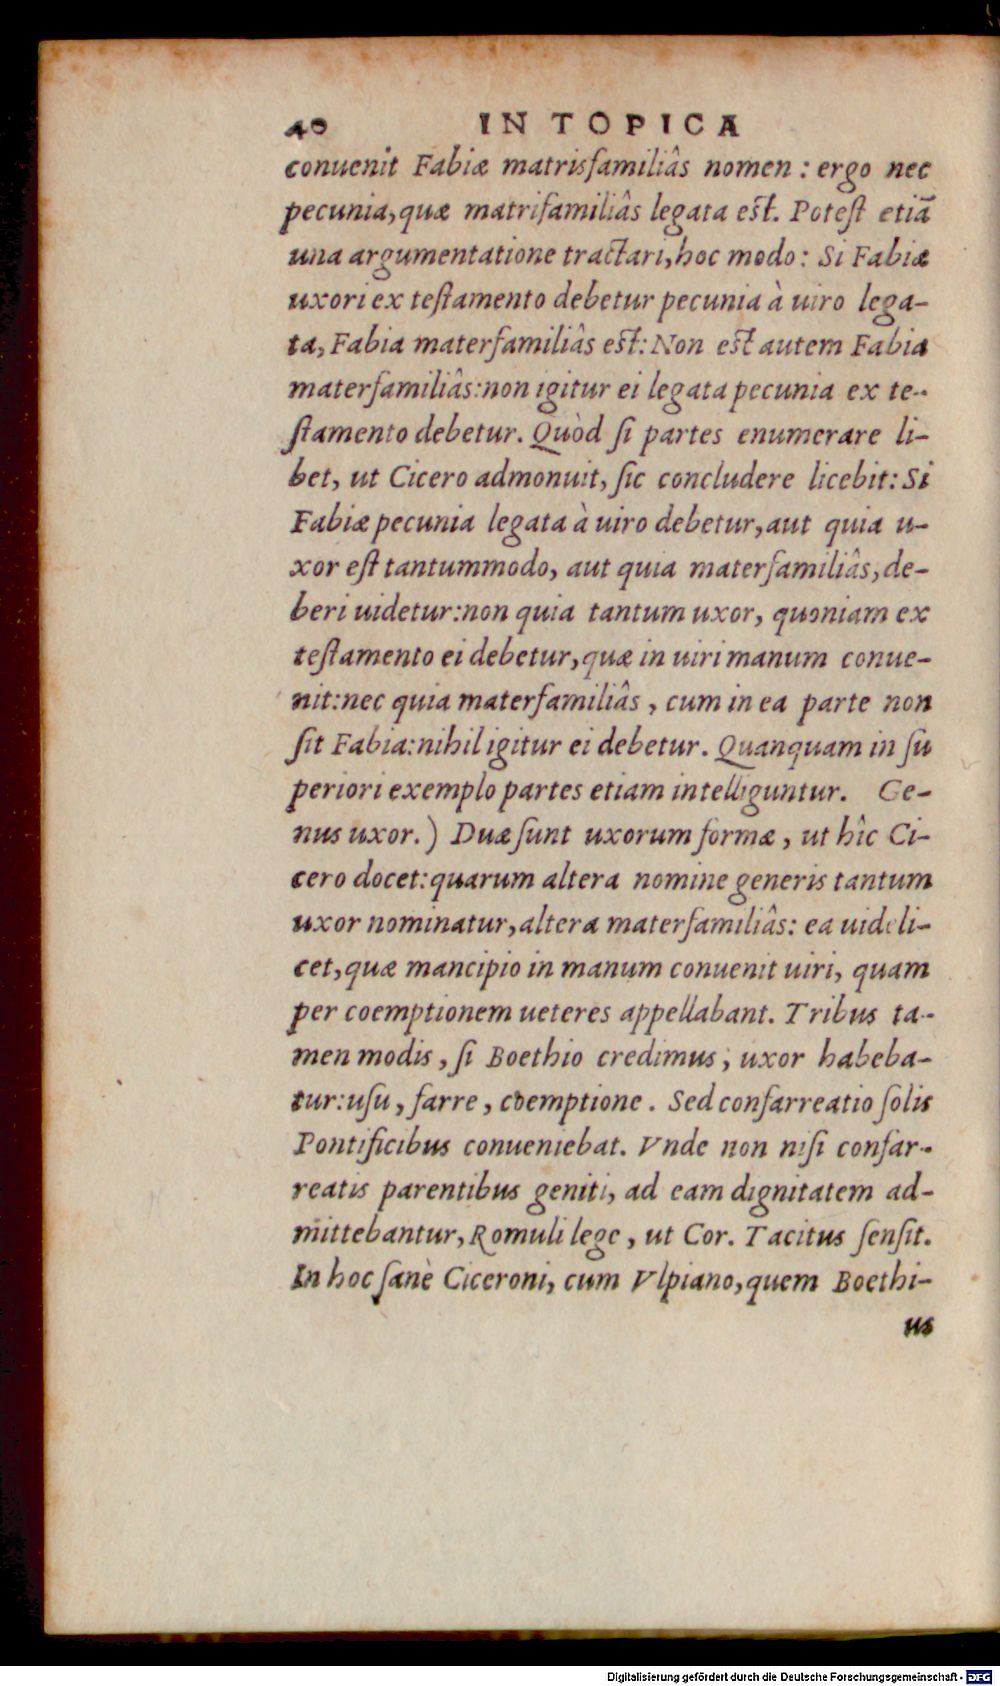 40 IN TOPICA
conuenit Fabiæ matrisfamiliâs nomen : ergo nec
pecunia, quæ matrifamiliâs legata est. Potest etiā
una argumentatione tractari, hoc modo: Si Fabiæ
uxori ex testamento debetur pecunia à uiro lega-
ta, Fabia materfamiliâs est: Non est autem Fabia
materfamiliâs: non igitur ei legata pecunia ex te-
stamento debetur. Quòd si partes enumerare li-
bet, ut Cicero admonuit, sic concludere licebit: Si
Fabiæ pecunia legata à uiro debetur, aut quia u-
xor est tantummodo, aut quia materfamiliâs, de-
beri uidetur: non quia tantum uxor, quoniam ex
testamento ei debetur, quæ in uiri manum conue-
nit: nec quia materfamiliâs, cum in ea parte non
sit Fabia: nihil igitur ei debetur. Quanquam in su
periori exemplo partes etiam intelliguntur. Ge-
nus uxor.) Duæ sunt uxorum formæ, ut hîc Ci-
cero docet: quarum altera nomine generis tantum
uxor nominatur, altera materfamiliâs: ea uideli-
cet, quæ mancipio in manum conuenit uiri, quam
per coemptionem ueteres appellabant. Tribus ta-
men modis, si Boethio credimus, uxor habeba-
tur: usu, farre, coemptione. Sed confarreatio solis
Pontificibus conueniebat. Vnde non nisi confar-
reatis parentibus geniti, ad eam dignitatem ad-
mittebantur, Romuli lege, ut Cor. Tacitus sensit.
In hoc sanè Ciceroni, cum Vlpiano, quem Boethi-
us
Digitalisierung gefördert durch die Deutsche Forschungsgemeinschaft - DFG